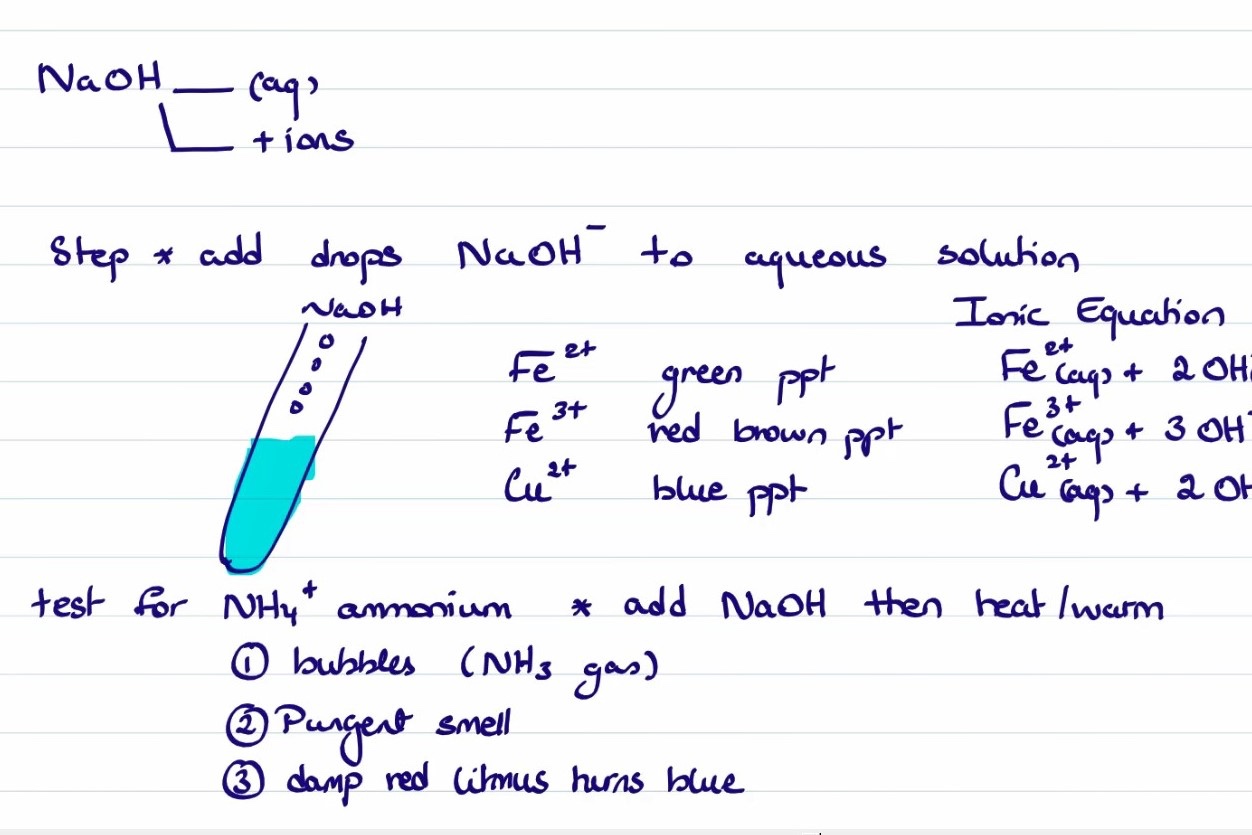 NaOH — (aq)
+ ions
Step * add drops NaOH⁻ to aqueous solution
NaOH
Ionic Equation
Fe²⁺ green ppt Fe²⁺(aq) + 2 OH
Fe³⁺ red brown ppt Fe³⁺(aq) + 3 OH⁻
Cu²⁺ blue ppt Cu²⁺(aq) + 2 OH
test for NH₄⁺ ammonium * add NaOH then heat/warm
① bubbles (NH₃ gas)
② Pungent smell
③ damp red litmus turns blue